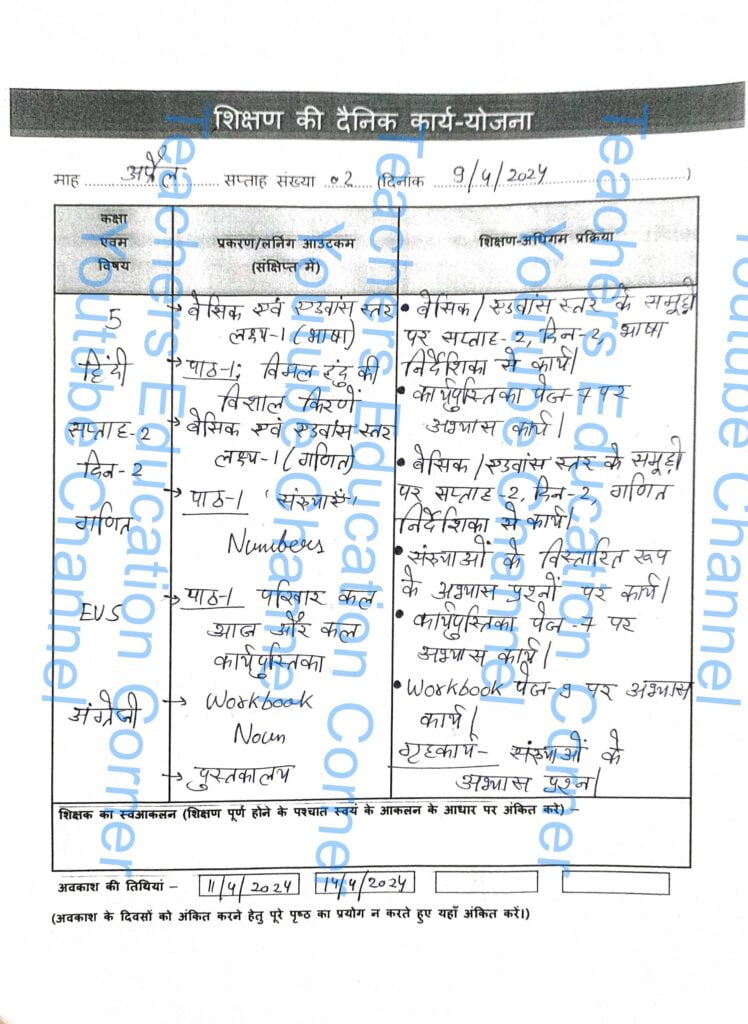 शिक्षण की दैनिक कार्य-योजना
माह अप्रैल सप्ताह संख्या 02 (दिनांक 9/4/2024)
कक्षा एवम विषय
प्रकरण/लर्निंग आउटकम (संक्षिप्त में)
शिक्षण-अधिगम प्रक्रिया
5
हिंदी
सप्ताह-2
दिन-2
गणित
EVS
अंग्रेजी
→ बेसिक एवं एडवांस स्तर
लक्ष्य-1 (भाषा)
→ पाठ-1; विमल इंदु की
विशाल किरणें
→ बेसिक एवं एडवांस स्तर
लक्ष्य-1 (गणित)
→ पाठ-1 'संख्याएँ'
Numbers
→ पाठ-1 परिवार कल
आज और कल
कार्यपुस्तिका
→ Workbook
Noun
→ पुस्तकालय
• बेसिक/एडवांस स्तर के समूहों
पर सप्ताह-2, दिन-2, भाषा
निर्देशिका से कार्य।
• कार्यपुस्तिका पेज-7 पर
अभ्यास कार्य।
• बेसिक/एडवांस स्तर के समूहों
पर सप्ताह-2, दिन-2, गणित
निर्देशिका से कार्य।
• संख्याओं के विस्तारित रूप
के अभ्यास प्रश्नों पर कार्य।
• कार्यपुस्तिका पेज-7 पर
अभ्यास कार्य।
• Workbook पेज-9 पर अभ्यास
कार्य।
गृहकार्य- संख्याओं के
अभ्यास प्रश्न।
शिक्षक का स्वआकलन (शिक्षण पूर्ण होने के पश्चात स्वयं के आकलन के आधार पर अंकित करे) –
अवकाश की तिथियां – 11/4/2024 14/4/2024
(अवकाश के दिवसों को अंकित करने हेतु पूरे पृष्ठ का प्रयोग न करते हुए यहाँ अंकित करें।)
Teachers Education Corner
Youtube Channel
Teachers Education Corner
Youtube Channel
Teachers Education Corner
Youtube Channel